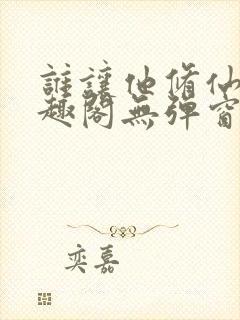 誰讓他脩仙
趣閣無彈窗
奕嘉